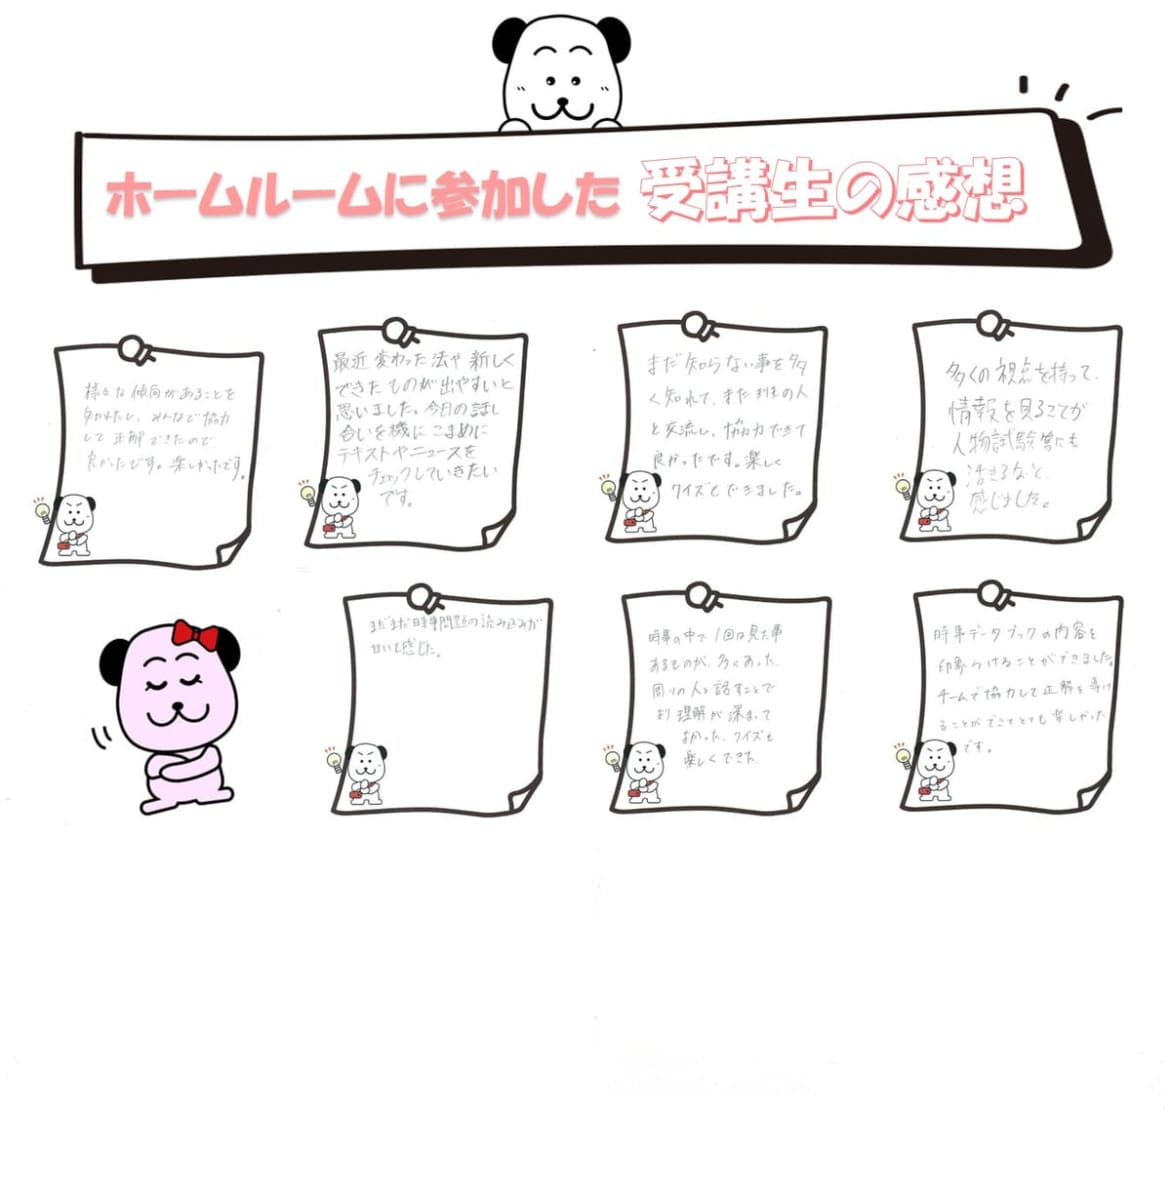 ホームルームに参加した 受講生の感想
様々な傾向があることを
知れたし、みんなで協力
して正解できたので
良かったです。楽しかったです。
最近変わった法や新しく
できたものが出やすいと
思いました。今日の話し
合いを機にこまめに
テキストやニュースを
チェックしていきたい
です。
まだ知らない事を多
く知れて、また班の人
と交流し、協力できて
良かったです。楽しく
クイズとできました。
多くの視点を持って、
情報を見ることが
人物試験等にも
活きるなと
感じました。
まだまだ時事問題の読み込みが
甘いと感じた。
時事の中で1回は見た事
あるものが、多くあった。
周りの人と話すことで
より理解が深まって
よかった。クイズも
楽しくできた。
時事データブックの内容を
印象づけることができました。
チームで協力して正解を導け
ることができてとても楽しかった
です。